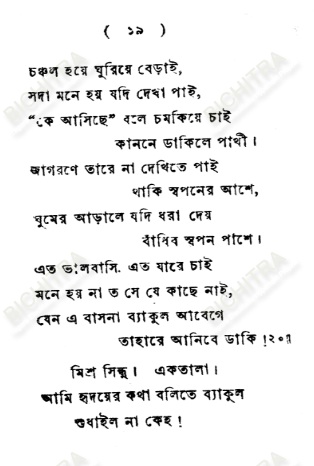 ( ১৯ )
চঞ্চল হয়ে ঘুরিয়ে বেড়াই,
সদা মনে হয় যদি দেখা পাই,
“কে আসিছে” বলে চমকিয়ে চাই
কাননে ডাকিলে পাখী।
জাগরণে তারে না দেখিতে পাই
থাকি স্বপনের আশে,
ঘুমের আড়ালে যদি ধরা দেয়
বাঁধিব স্বপন পাশে।
এত ভালবাসি. এত যারে চাই
মনে হয় না ত সে যে কাছে নাই,
যেন এ বাসনা ব্যাকুল আবেগে
তাহারে আনিবে ডাকি !২০॥
মিশ্র সিন্ধু। একতালা।
আমি হৃদয়ের কথা বলিতে ব্যাকুল
শুধাইল না কেহ !
BICHITRA
BICHITRA
BICHITRA
BICHITRA